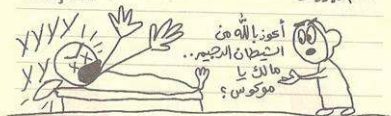 لاااااا
أعوذ بالله من
الشيطان الرجيم..
مالك يا
موكوس؟